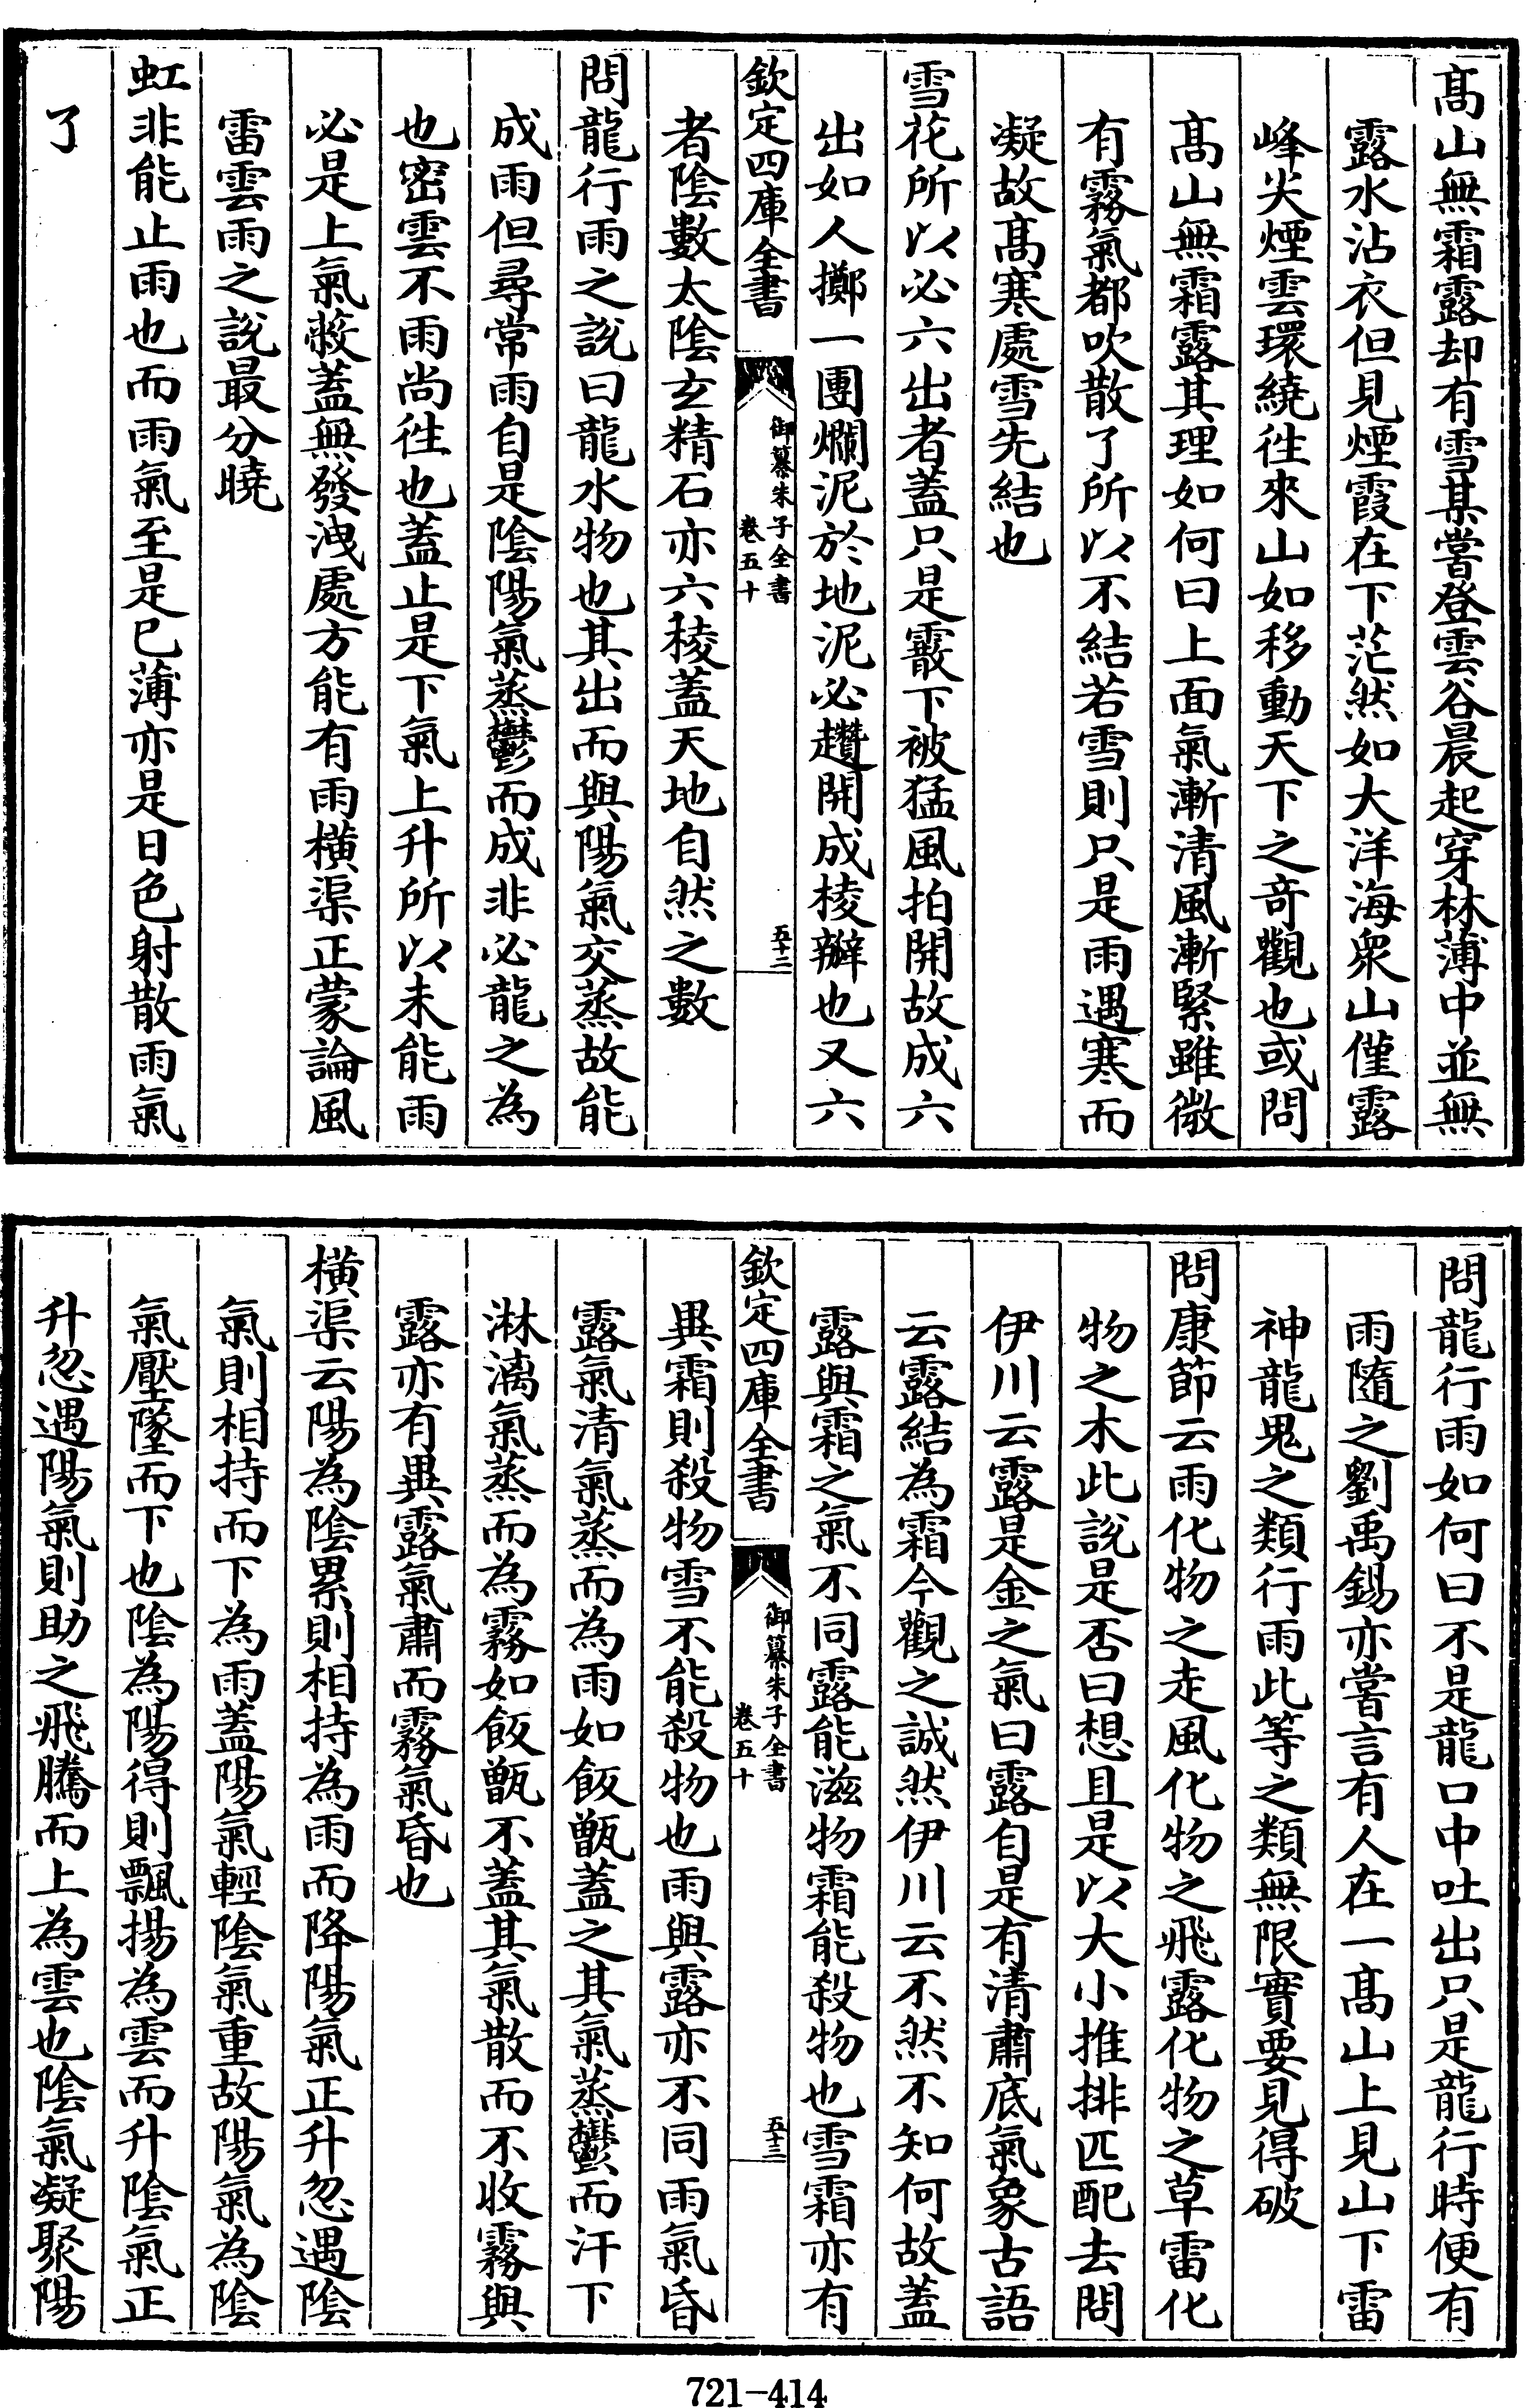 髙山無霜露却有雪某嘗登雲谷晨起穿林薄中並無
露水沾衣但見煙霞在下茫然如大洋海衆山僅露
峰尖煙雲環繞徃來山如移動天下之竒觀也或問
髙山無霜露其理如何曰上面氣漸清風漸緊雖微
有霧氣都吹散了所以不結若雪則只是雨遇寒而
凝故髙寒處雪先結也
雪花所以必六出者蓋只是霰下被猛風拍開故成六
出如人擲一團爛泥於地泥必趲開成棱瓣也又六
欽定四庫全書
御纂朱子全書
卷五十
五十二
者陰數太陰玄精石亦六稜蓋天地自然之數
問龍行雨之說曰龍水物也其出而與陽氣交蒸故能
成雨但尋常雨自是陰陽氣蒸鬱而成非必龍之為
也密雲不雨尚徃也蓋止是下氣上升所以未能雨
必是上氣蔽蓋無發洩處方能有雨横渠正蒙論風
雷雲雨之說最分曉
虹非能止雨也而雨氣至是已薄亦是日色射散雨氣
了
問龍行雨如何曰不是龍口中吐出只是龍行時便有
雨隨之劉禹錫亦嘗言有人在一髙山上見山下雷
神龍鬼之類行雨此等之類無限實要見得破
問康節云雨化物之走風化物之飛露化物之草雷化
物之木此說是否曰想且是以大小推排匹配去問
伊川云露是金之氣曰露自是有清肅底氣象古語
云露結為霜今觀之誠然伊川云不然不知何故蓋
露與霜之氣不同露能滋物霜能殺物也雪霜亦有
欽定四庫全書
御纂朱子全書
卷五十
五十三
異霜則殺物雪不能殺物也雨與露亦不同雨氣昏
露氣清氣蒸而為雨如飯甑蓋之其氣蒸鬱而汗下
淋漓氣蒸而為霧如飯甑不蓋其氣散而不收霧與
露亦有異露氣肅而霧氣昏也
横渠云陽為陰累則相持為雨而降陽氣正升忽遇陰
氣則相持而下為雨蓋陽氣輕陰氣重故陽氣為陰
氣壓墜而下也陰為陽得則飄揚為雲而升陰氣正
升忽遇陽氣則助之飛騰而上為雲也陰氣凝聚陽
721-414